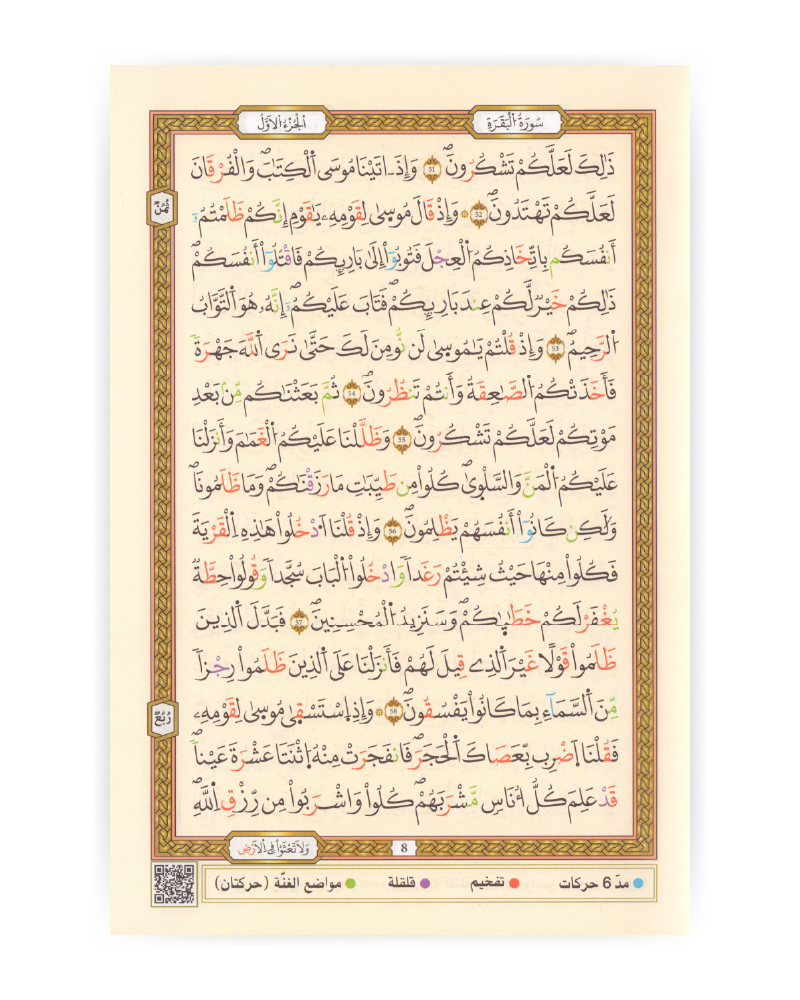 سُورَةُ الْبَقَرَةِ
الْجُزْءُ الْأَوَّلُ
ذَٰلِكَ لَعَلَّكُمْ تَشْكُرُونَۖ 51 وَإِذَ اٰتَيْنَا مُوسَى اَ۬لْكِتَٰبَ وَالْفُرْقَانَ
لَعَلَّكُمْ تَهْتَدُونَۖ 52 وَإِذْ قَالَ مُوسىٰ لِقَوْمِهِۦ يَٰقَوْمِ إِنَّكُمْ ظَلَمْتُمُۥٓ
ثُمُنٌ
أَنفُسَكُم بِاتِّخَاذِكُمُ اُ۬لْعِجْلَ فَتُوبُوٓاْ إِلَىٰ بَارِئِكُمْ فَاقْتُلُوٓاْ أَنفُسَكُمْۖ
ذَٰلِكُمْ خَيْرٞ لَّكُمْ عِندَ بَارِئِكُمْۖ فَتَابَ عَلَيْكُمُۥٓۖ إِنَّهُۥ هُوَ اَ۬لتَّوَّابُ
اُ۬لرَّحِيمُۖ 53 وَإِذْ قُلْتُمْ يَٰمُوسىٰ لَن نُّومِنَ لَكَ حَتَّىٰ نَرَى اَ۬للَّهَ جَهْرَةٗ
فَأَخَذَتْكُمُ اُ۬لصَّٰعِقَةُ وَأَنتُمْ تَنظُرُونَۖ 54 ثُمَّ بَعَثْنَٰكُم مِّنۢ بَعْدِ
مَوْتِكُمْ لَعَلَّكُمْ تَشْكُرُونَۖ 55 وَظَلَّلْنَا عَلَيْكُمُ اُ۬لْغَمَٰمَ وَأَنزَلْنَا
عَلَيْكُمُ اُ۬لْمَنَّ وَالسَّلْوىٰۖ كُلُواْ مِن طَيِّبَٰتِ مَا رَزَقْنَٰكُمْۖ وَمَا ظَلَمُونَاۖ
وَلَٰكِن كَانُوٓاْ أَنفُسَهُمْ يَظْلِمُونَۖ 56 وَإِذْ قُلْنَا اَ۟دْخُلُواْ هَٰذِهِ اِ۬لْقَرْيَةَ
فَكُلُواْ مِنْهَا حَيْثُ شِئْتُمْ رَغَداٗ وَادْخُلُواْ اُ۬لْبَابَ سُجَّداٗ وَقُولُواْ حِطَّةٞ
يُغْفَرْ لَكُمْ خَطَٰيٰكُمْۖ وَسَنَزِيدُ اُ۬لْمُحْسِنِينَۖ 57 فَبَدَّلَ اَ۬لذِينَ
ظَلَمُواْ قَوْلاً غَيْرَ اَ۬لذِے قِيلَ لَهُمْ فَأَنزَلْنَا عَلَى اَ۬لذِينَ ظَلَمُواْ رِجْزاٗ
مِّنَ اَ۬لسَّمَآءِ بِمَا كَانُواْ يَفْسُقُونَۖ 58 وَإِذِ اِ۪سْتَسْقىٰ مُوسىٰ لِقَوْمِهِۦ
رُبُعٌ
فَقُلْنَا اَ۪ضْرِب بِّعَصَاكَ اَ۬لْحَجَرَۖ فَانفَجَرَتْ مِنْهُ اُ۪ثْنَتَا عَشْرَةَ عَيْناٗۖ
قَدْ عَلِمَ كُلُّ أُنَاسٖ مَّشْرَبَهُمْۖ كُلُواْ وَاشْرَبُواْ مِن رِّزْقِ اِ۬للَّهِۖ
8
وَلَا تَعْثَوْاْ فِي اِ۬لْأَرْضِ
مدّ 6 حركات
تفخيم
قلقلة
مواضع الغنّة (حركتان)